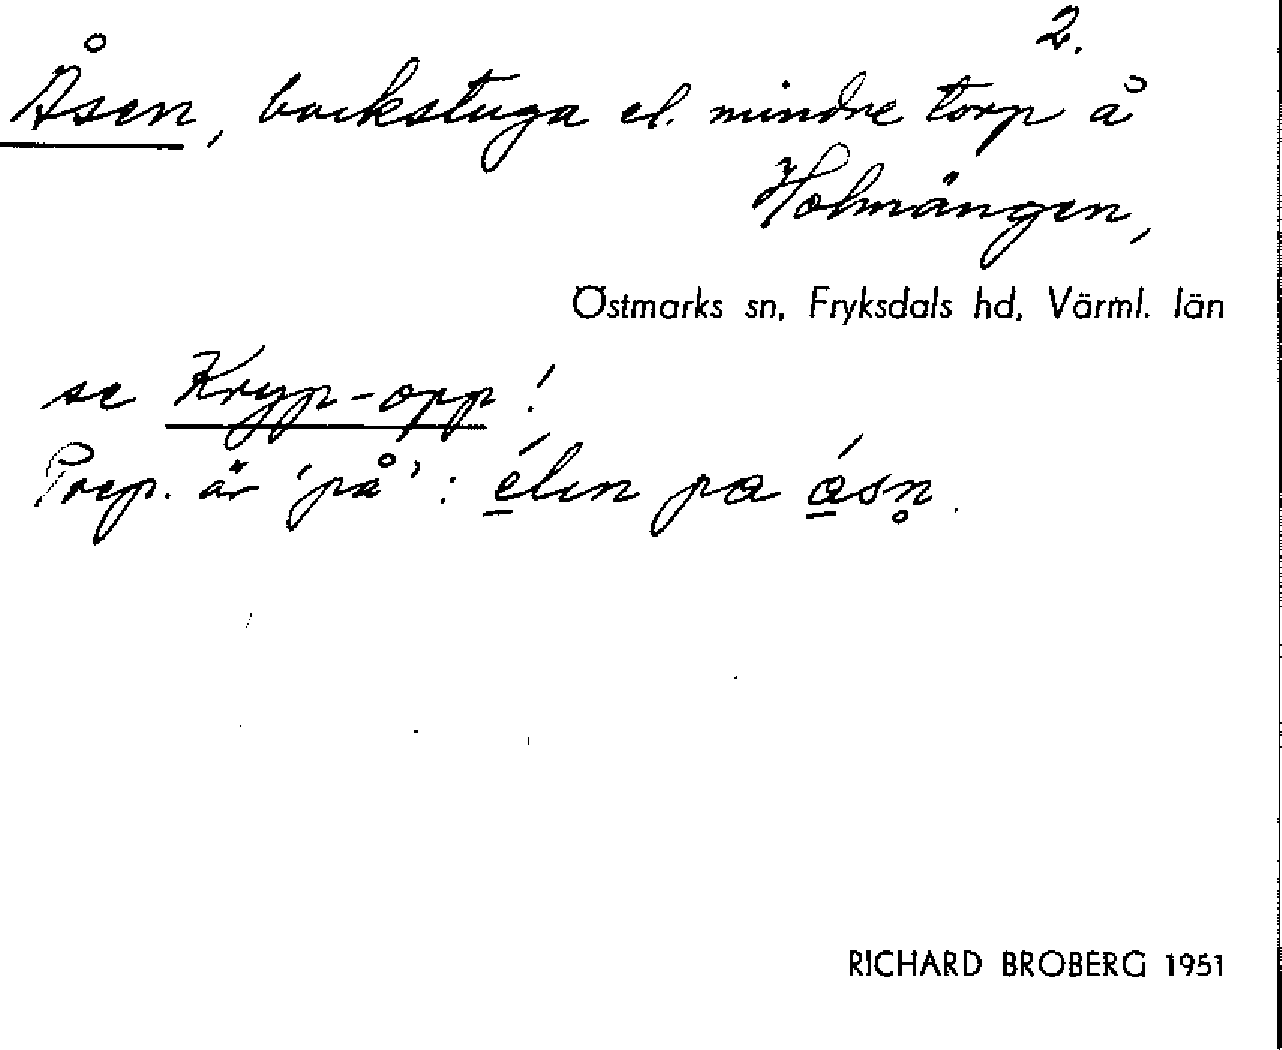 2.
Åsen, backstuga el. mindre torp å
Holmängen,
Östmarks sn, Fryksdals hd, Värml. län
se Kryp-opp!
Prep. är 'på': élin pa ásn̥.
RICHARD BROBERG 1951